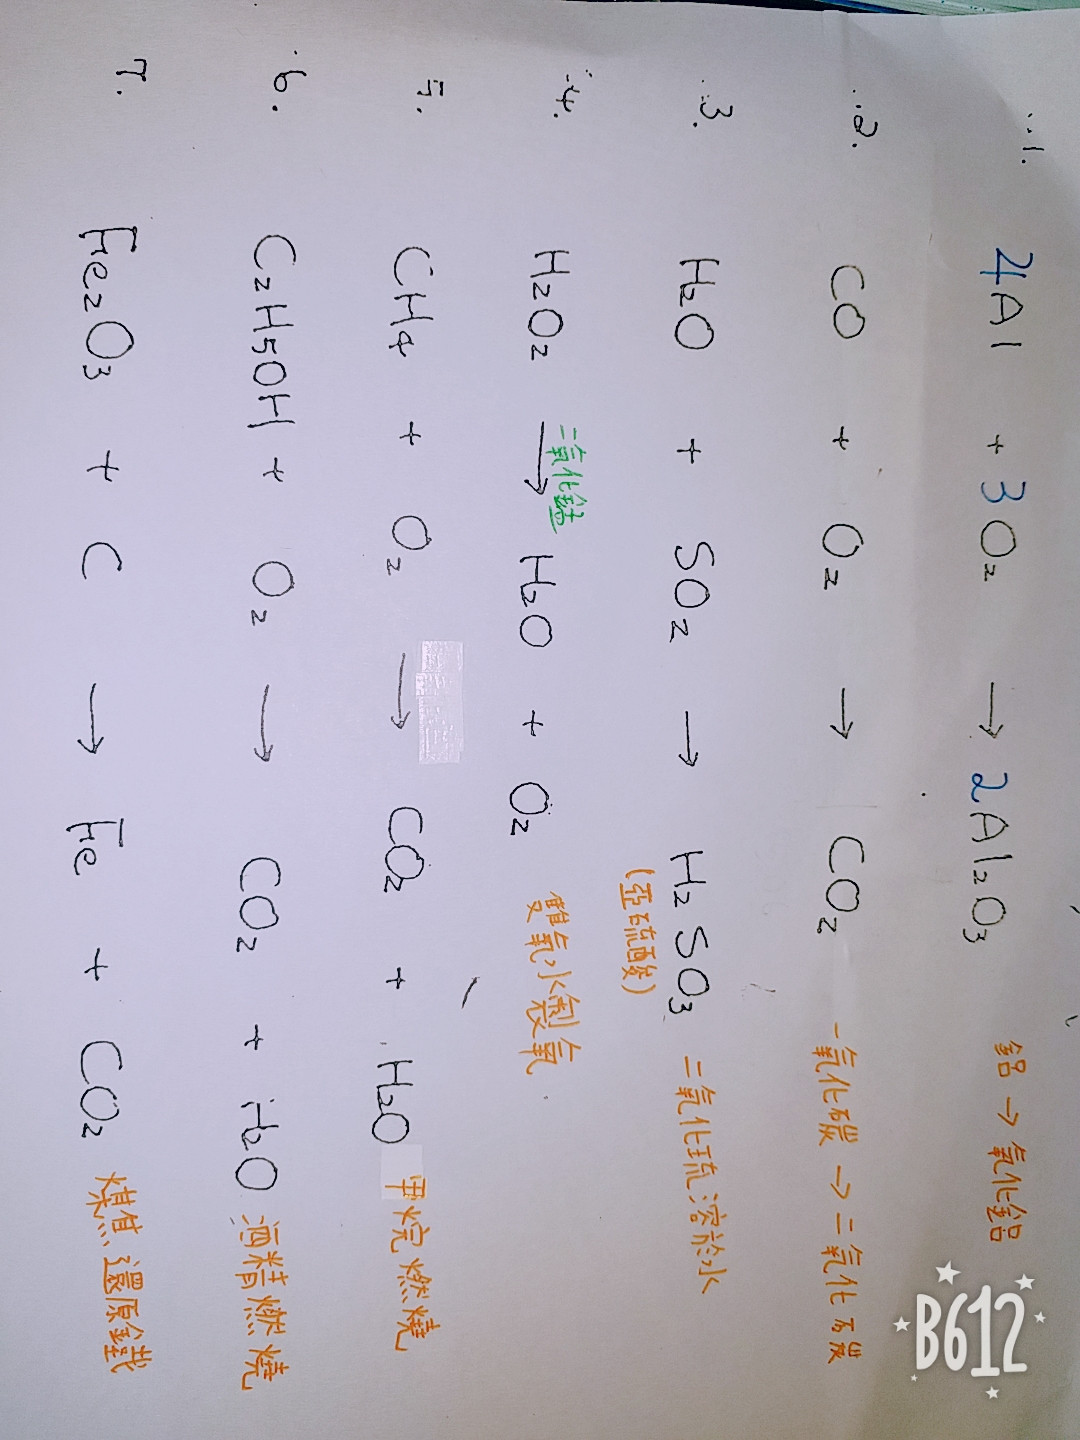 1. 4Al + 3O₂ → 2Al₂O₃ 鋁 → 氧化鋁
2. CO + O₂ → CO₂ 一氧化碳 → 二氧化碳
3. H₂O + SO₂ → H₂SO₃ 二氧化琉溶於水
(亞硫酸)
二氧化錳
4. H₂O₂ → H₂O + O₂ 雙氧水製氧
5. CH₄ + O₂ → CO₂ + H₂O 甲烷燃燒
6. C₂H5OH + O₂ → CO₂ + H₂O 酒精燃燒
7. Fe₂O₃ + C → Fe + CO₂ 煤焦還原鐵
B612